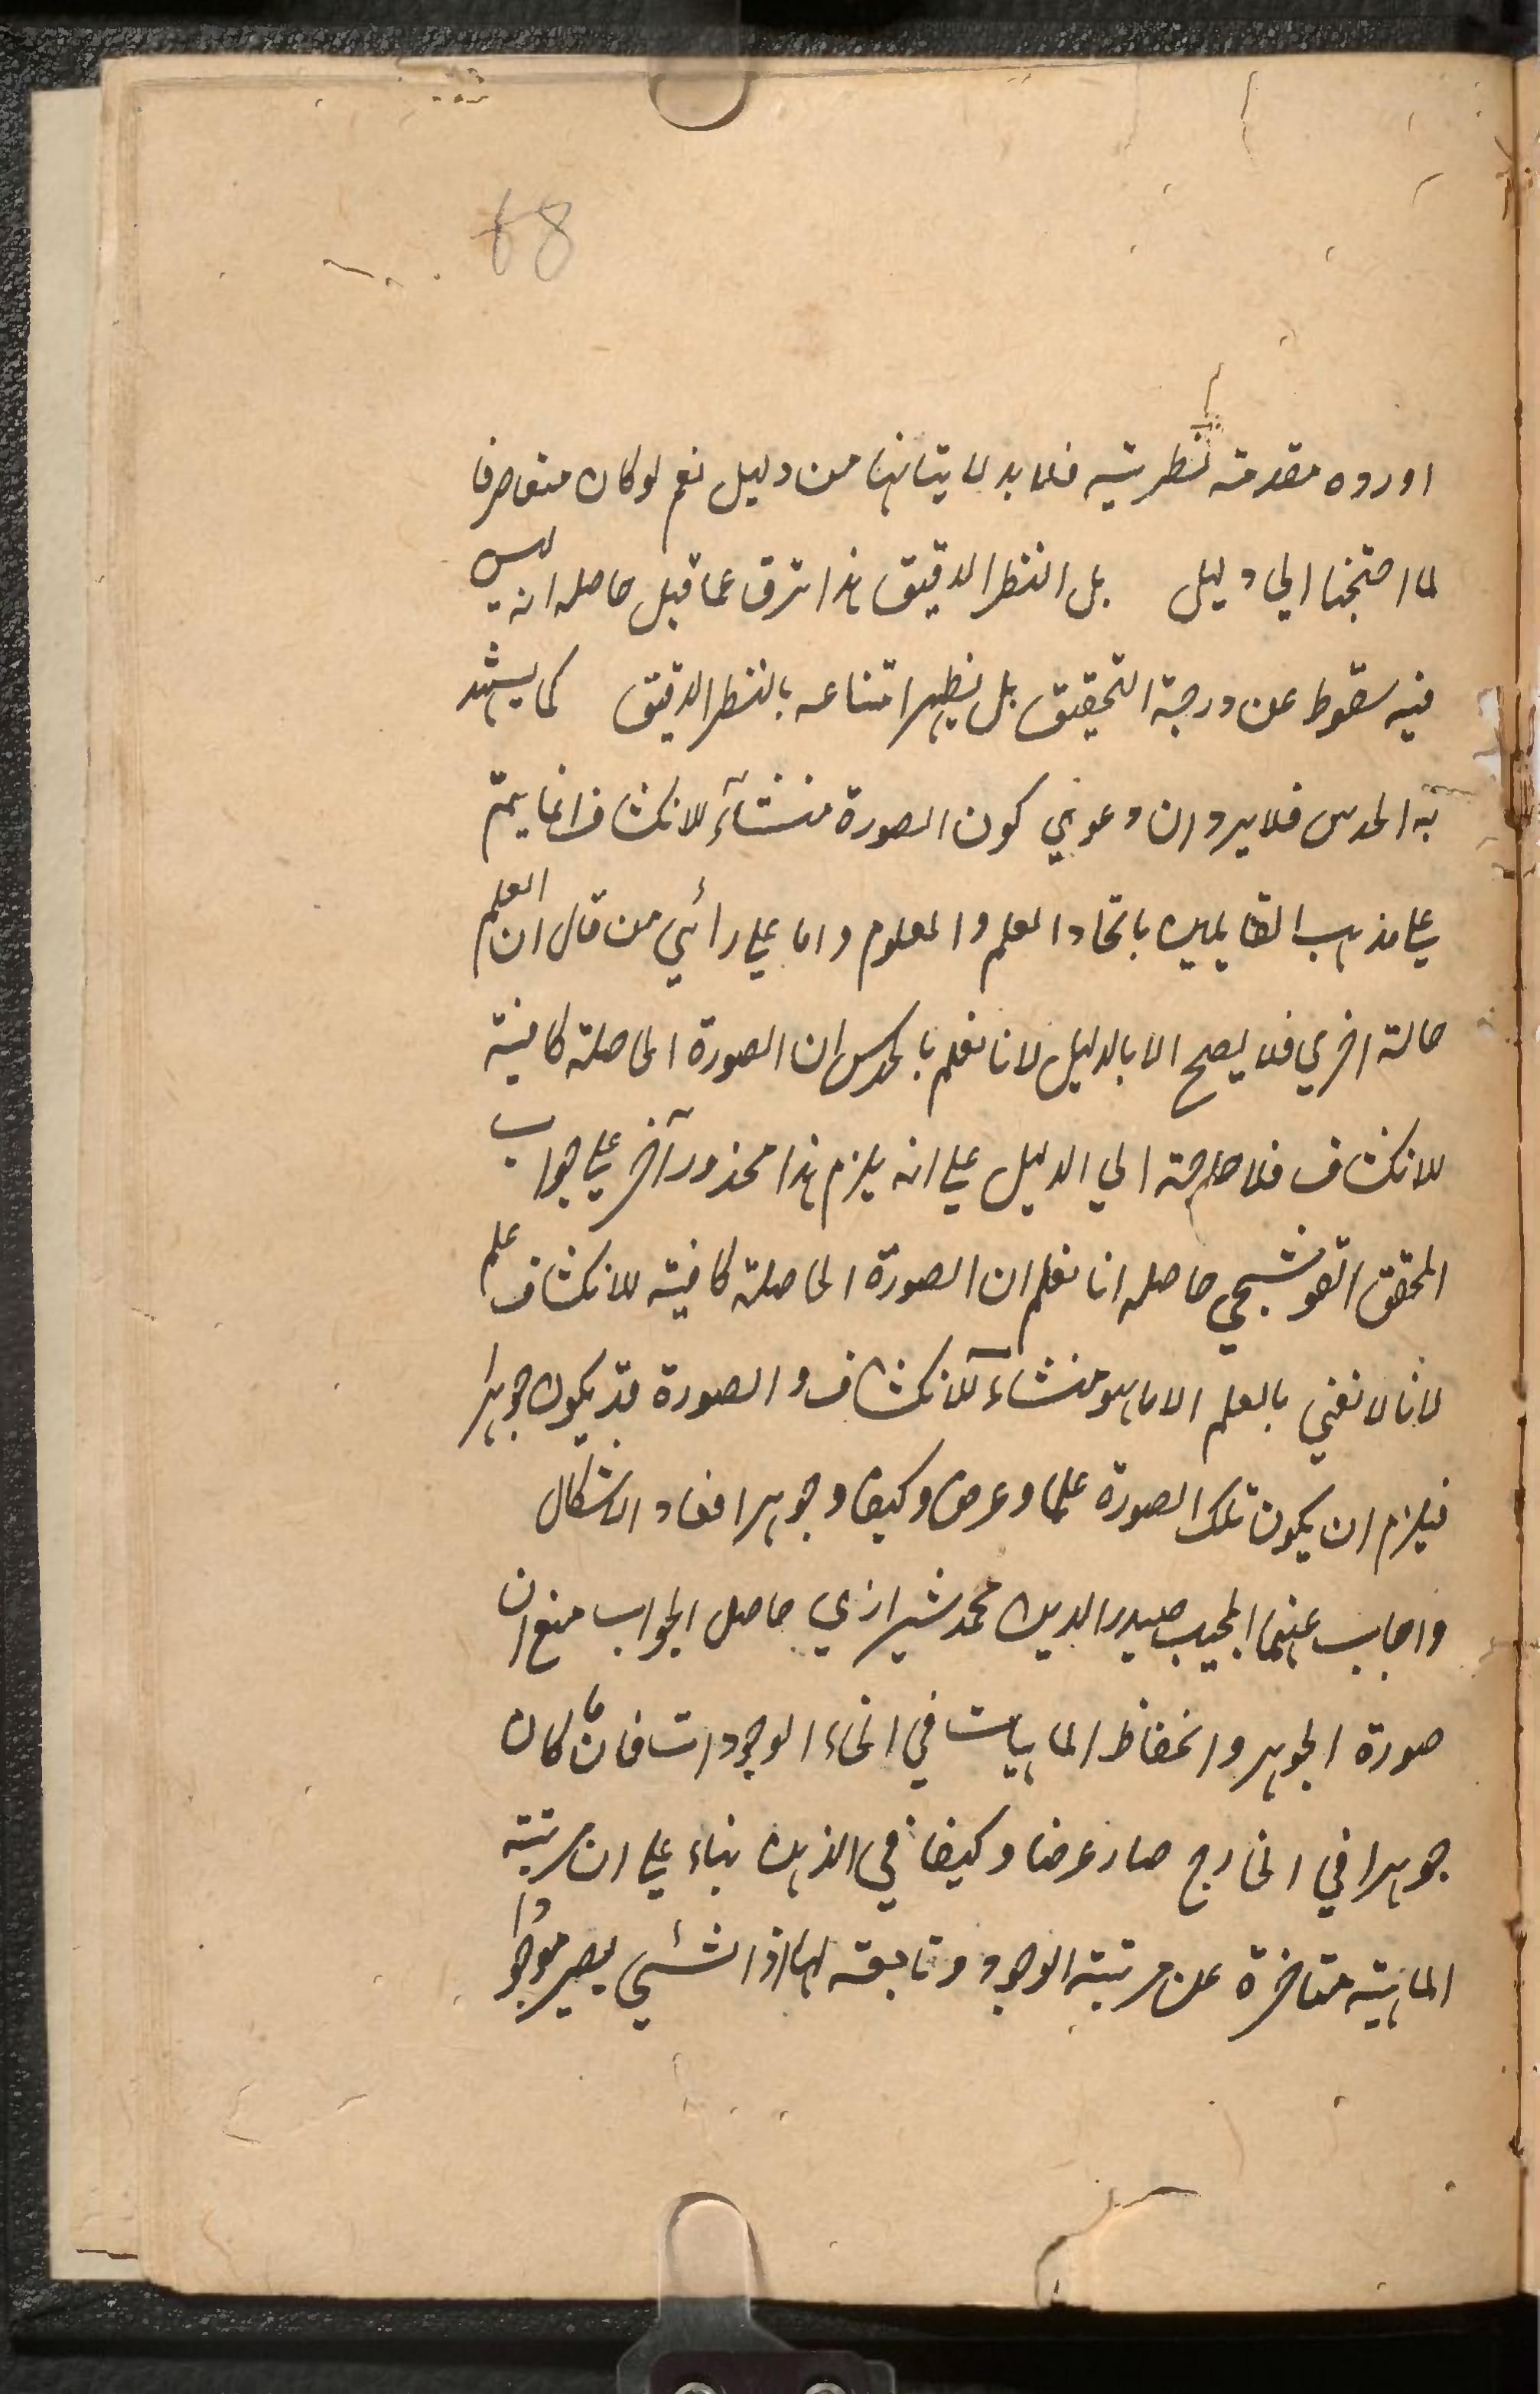 68
اورده مقدمة نظرية فلا بد لاثباتها من دليل نعم لو كان متعارفا
لما احتجنا الي دليل بل النظر الدقيق هذا ترق عما قبل حاصله انه ليس
فيه سقوط عن درجة التحقيق بل يظهر امتناعه بالنظر الدقيق كما يشهد
به الحدس فلا يرد ان دعوي كون الصورة منشآء للانكشاف انما يتم
علي مذهب القايلين باتحاد العلم والمعلوم واما علي رأئي من قال ان العلم
حالة اخري فلا يصح الا بالدليل لانا نعلم بالحدس ان الصورة الحاصلة كافية
للانكشاف فلا حاجة الي الدليل علي انه يلزم هذا محذور آخر علي جواب
المحقق القوشجي حاصله انا نعلم ان الصورة الحاصلة كافية للانكشاف علم
لانا لا نعني بالعلم الا ما هو منشاء للانكشاف والصورة قد يكون جوهرا
فيلزم ان يكون تلك الصورة علما وعرضا وكيفا وجوهرا فعاد الاشكال
واجاب عنهما المجيب صدر الدين محمد شيرازي حاصل الجواب منع ان
صورة الجوهر وانحفاظ الماهيات في انحاء الوجودات فان ما كان
جوهرا في الخارج صار عرضا وكيفا في الذهن بناء علي ان مرتبة
الماهية متاخرة عن مرتبة الوجود وتابعة لها اذ الشئي يصير موجودا